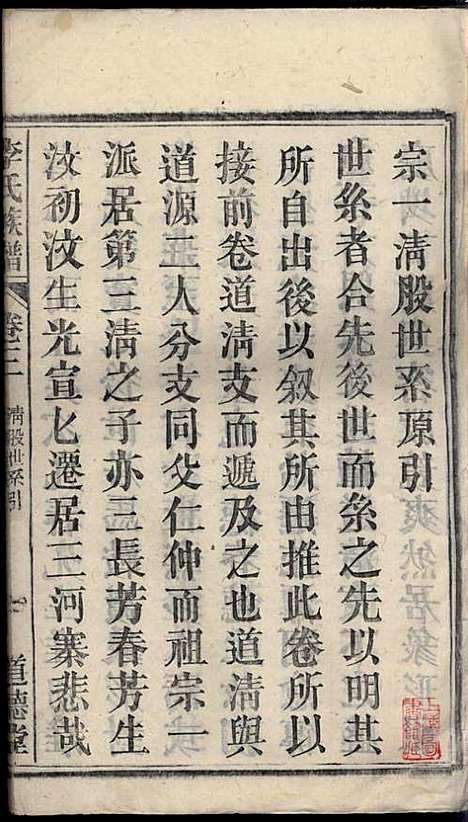 宗一淸股世系原引
世系者合先後世而系之先以明其
所自出後以叙其所由推此卷所以
接前卷道淸支而遞及之也道淸與
道源二人分支同父仁仲而祖宗一
派居第三淸之子亦三長芳春芳生
汶初汶生光宣匕遷居三河寨悲哉
李氏族譜
卷三
淸股世系引
一
道德堂